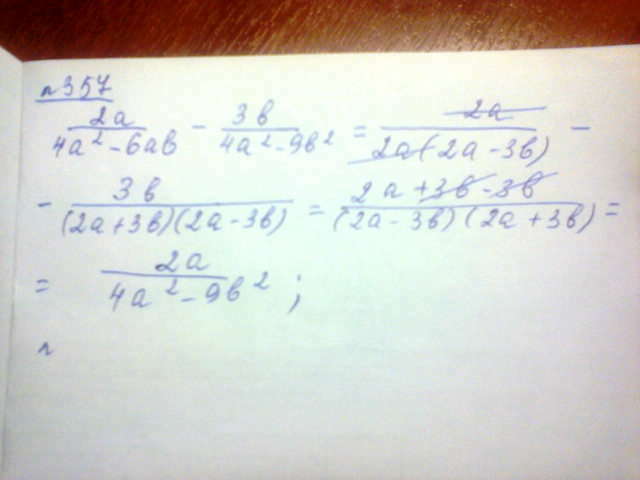 n357
2a/(4a² - 6ab) - 3b/(4a² - 9b²) = 2a/(2a(2a - 3b)) -
- 3b/((2a + 3b)(2a - 3b)) = (2a + 3b - 3b)/((2a - 3b)(2a + 3b)) =
= 2a/(4a² - 9b²) ;
n